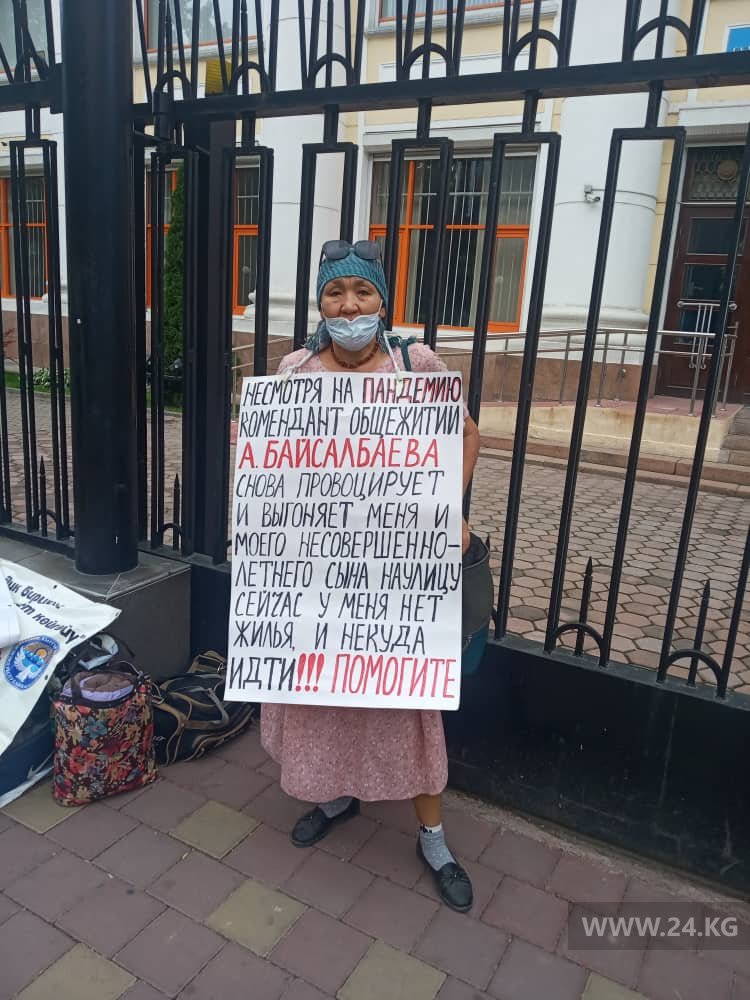 НЕСМОТРЯ НА ПАНДЕМИЮ
КОМЕНДАНТ ОБЩЕЖИТИИ
А. БАЙСАЛБАЕВА
СНОВА ПРОВОЦИРУЕТ
И ВЫГОНЯЕТ МЕНЯ И
МОЕГО НЕСОВЕРШЕННО-
ЛЕТНЕГО СЫНА НАУЛИЦУ
СЕЙЧАС У МЕНЯ НЕТ
ЖИЛЬЯ, И НЕКУДА
ИДТИ!!! ПОМОГИТЕ
WWW.24.KG